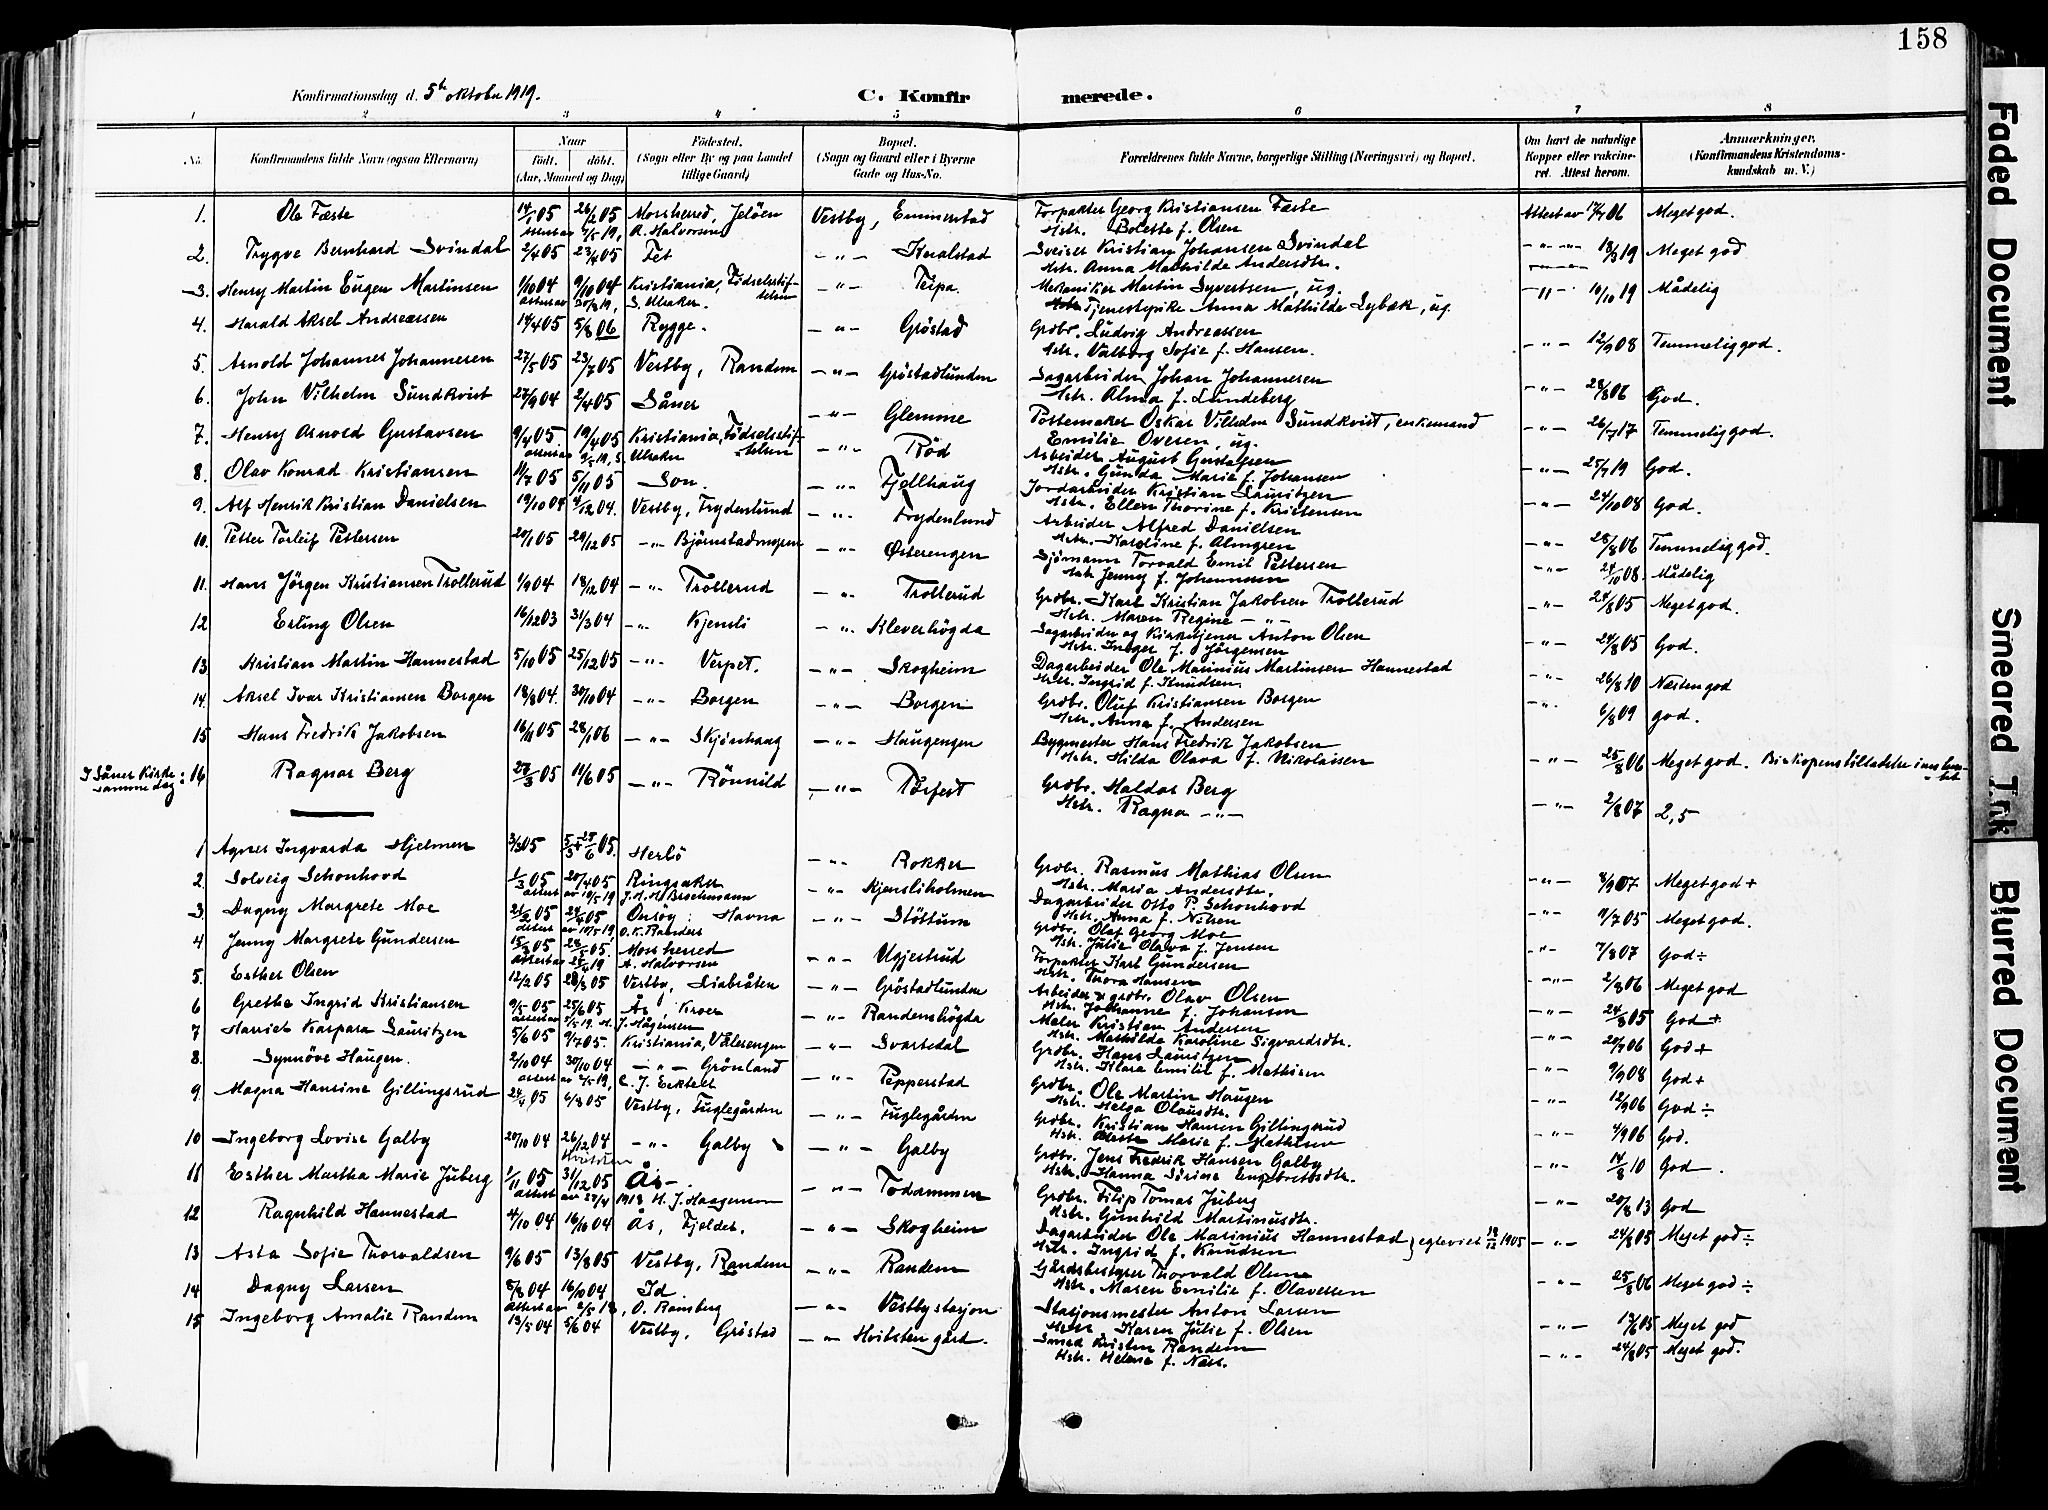 158
Konfirmationsdag d. 5te oktober 1919. C. Konfirmerede.
1 2 3 4 5 6 7 8
No. Konfirmandens fulde Navn (ogsaa Efternavn) Naar födt. döbt. (Aar, Maaned og Dag) Födested. (Sogn eller By og paa Landet tillige Gaard) Bopæl. (Sogn og Gaard eller i Byerne Gade og Hus-No. Forældrenes fulde Navne, borgerlige Stilling (Næringsvei) og Bopæl. Om havt de naturlige Kopper eller vakcineret. Attest herom. Anmærkninger, (Konfirmandens Kristendomskundskab m. V.)
1. Ole Fæste 14/1 05 26/2 05 Mossherred, Jelöen Vestby, Emmerstad Forpakter Georg Kristiansen Fæste Attest av 17/7 06 Meget god.
attest av 7/5 19, A. Halvorsen Hstr. Bolette f. Olsen
2. Trygve Bernhard Svindal 2/4 05 23/4 05 Fet -"- Knalstad Sveiser Kristian Johansen Svindal -"- 18/3 19 Meget god
Hstr. Anna Mathilde Andersdtr.
3. Henry Martin Eugen Martinsen 1/10 04 9/10 04 Kristiania, Födselsstiftelsen -"- Teipa. Mekaniker Martin Syvertsen, ug. -"- 10/10 19 Mådelig
attest av 30/9 19, S. Ulsaker. Tjenestepike Anna Mathilde Lybæk, ug.
4. Harald Aksel Andreassen 14/4 05 5/8 06 Rygge. -"- Gröstad Grdbr. Ludvig Andreassen -"- 12/9 08 Temmelig god.
Hstr. Valborg Sofie f. Hansen.
5. Arnold Johannes Johannesen 27/5 05 23/7 05 Vestby, Randem -"- Gröstadlunden Sagarbeider Johan Johannesen -"- 28/8 06 God.
Hstr. Alma f. Lundeberg
6. John Vilhelm Sundkvist 27/9 04 2/4 05 Såner -"- Glemme Pottemaker Oskar Vilhelm Sundkvist, enkemand -"- 26/7 17 Temmelig god.
Emilie Ovesen, ug.
7. Henry Arnold Gustavsen 9/4 05. 19/4 05 Kristiania, Födselsstiftelsen -"- Röd Arbeider August Gustavsen -"- 25/7 19 God.
attest av 9/5 19, S. Ulsaker Hstr. Gunda Marie f. Johansen
8. Olav Konrad Kristiansen 11/7 05 5/11 05 Son. -"- Fjellhaug Jordarbeider Kristian Lauritzen -"- 24/10 08 God.
Hstr. Ellen Thorine f. Kristensen
9. Alf Henrik Kristian Danielsen 19/10 04 4/12 04. Vestby, Frydenlund -"- Frydenlund Arbeider Alfred Danielsen -"- 28/8 06 Temmelig god.
Hstr. Karoline f. Almgren
10. Petter Torleif Pettersen 20/1 05 29/12 05 -"- Bjørnstadengen -"- Østerengen Sjömann Torvald Emil Pettersen -"- 24/10 08. Mådelig
Hstr. Jenny f. Johannesen
11. Hans Jörgen Kristiansen Trollerud 1/9 04 18/12 04 -"- Trollerud -"- Trollerud Grdbr. Karl Kristian Jakobsen Trollerud -"- 24/8 05 Meget god.
Hstr. Maren Regine -"-
12 Erling Olsen 16/12 03 31/3 04 -"- Kjensli -"- Kleverhögda Sagarbeider og Kirketjener Anton Olsen -"- 24/8 05 God.
Hstr. Inger f. Jörgensen
13. Kristian Martin Hannestad 5/10 05 25/12 05 -"- Verpet. -"- Skogheim Dagarbeider Ole Marinius Martinsen Hannestad -"- 26/8 10 Næsten god
Hstr. Ingrid f. Knudsen.
14. Aksel Ivar Kristiansen Borgen 18/8 04. 30/10 04 -"- Borgen -"- Borgen Grdbr. Oluf Kristiansen Borgen -"- 6/8 09 god.
Hstr. Anna f. Andersen
15 Hans Fredrik Jakobsen 16/11 05 28/1 06 -"- Skjönhaug -"- Haugengen Bygmester Hans Fredrik Jakobsen -"- 25/8 06 Meget god. Biskopens tilladelse
Hstr. Hilda Olava f. Nikolaisen
I Såner Kirke samme dag: 16 Ragnar Berg 28/3 05 11/6 05 -"- Rönnild -"- Grdbr. Haldor Berg -"- 2/8 07 2,5
Hstr. Ragna -"-
1 Agnes Ingvarda Hjelmen 3/3 05 05. Herlö -"- Rokker Grdbr. Rasmus Mathias Olsen -"- 8/9 07 Meget god +
Hstr. Maria Andersdtr.
2. Solveig Schonhovd 1/3 05 20/4 05 Ringsaker -"- Kjensliholmen Dagarbeider Otto P. Schonhovd -"- 9/7 05 Meget god.
attest av 19/5 19 J. H. H. Brochmann Hstr. Anna f. Nilsen
3. Dagny Margrete Moe 21/2 05 24/4 05 Onsöy: Havna -"- Stöttum Grdbr. Olaf Georg Moe -"- 7/8 07 God ÷
attest av 10/5 19 O. K. Randers Hstr. Julie Olava f. Jensen
4 Jenny Margrete Gundersen 15/2 05 28/5 05. Mossherred -"- Ugjestrud Forpakter Karl Gundersen -"- 2/8 06 Meget god
attest av 24/4 19 A. Halvorsen Hstr. Thora Hansen
5. Esther Olsen 12/2 05 28/8 05 Vestby, Liabråten -"- Gröstadlunden Arbeider & grdbr. Olav Olsen -"- 24/8 05 God +
Hstr. Johanne f. Johansen
6 Grethe Ingrid Kristiansen 9/5 05 25/6 05 Ås, Kroer -"- Randemshögda Maler Kristian Andersen -"- 20/7 06 God +
attest av 2/5 19. H. J. Hågensen Hstr. Mathilde Karoline Sigvardsdtr.
7 Harriet Kaspara Lauritzen 5/6 05 9/7 05. Kristiania, Vålerengen -"- Svartedal Grdbr. Hans Lauritzen -"- 9/9 08 God +
Hstr. Klara Emilie f. Mathisen
8. Synnöve Haugen. 2/10 04 30/10 04 -"- Grönland -"- Pepperstad Grdbr. Ole Martin Haugen -"- 12/9 06 God ÷
attest av 2/5 19, Hstr. Helga Olausdtr.
9 Magna Hansine Gillingsrud 24/4 05 6/8 05 Vestby, Fuglegården -"- Fuglegården Grdbr. Kristian Hansen Gillingsrud -"- 4/9 06 God.
Hstr. Marie f. Mathisen
10 Ingeborg Lovise Galby 20/10 04 26/12 04 -"- Galby -"- Galby Grdbr. Jens Fredrik Hansen Galby -"- 14/8 10 God.
Hvitsten Hstr. Hanna Sirine Engebretsdtr.
11 Esther Martha Marie Juberg 1/11 05 31/12 05 Ås -"- Todammen Grdbr. Filip Tomas Juberg -"- 20/8 13 God
attest av 27/4 1918 H. J. Haagensen Hstr. Gunhild Martinusdtr.
12 Ragnhild Hannestad 4/10 04 16/10 04 Ås, Fjelder. -"- Skogheim Dagarbeider Ole Marinius Hannestad } egteviet 1905 -"- 24/8 05 Meget god ÷
Hstr. Ingrid f. Knudsen
13 Asta Sofie Thorvaldsen 9/6 05 13/8 05 Vestby, Randem -"- Randem Gårdsbestyrer Thorvald Olsen -"- 25/8 06 Meget god ÷
Hstr. Maren Emilie f. Olavessen
14 Dagny Larsen 8/8 04 16/10 04 Id. -"- Vestby stasjon Stasjonsmester Anton Larsen -"- 13/6 05 Meget god
attest av 2/5 18, O. Ramberg Hstr. Karen Julie f. Olsen
15 Ingeborg Amalie Randem 13/5 04 5/6 04 Vestby, Gröstad -"- Hvitsten gård. Smed Kristen Randem -"- 24/8 05 Meget god.
Hstr. Helene f. Næss.
Faded Document
Smeared Ink
Blurred Document